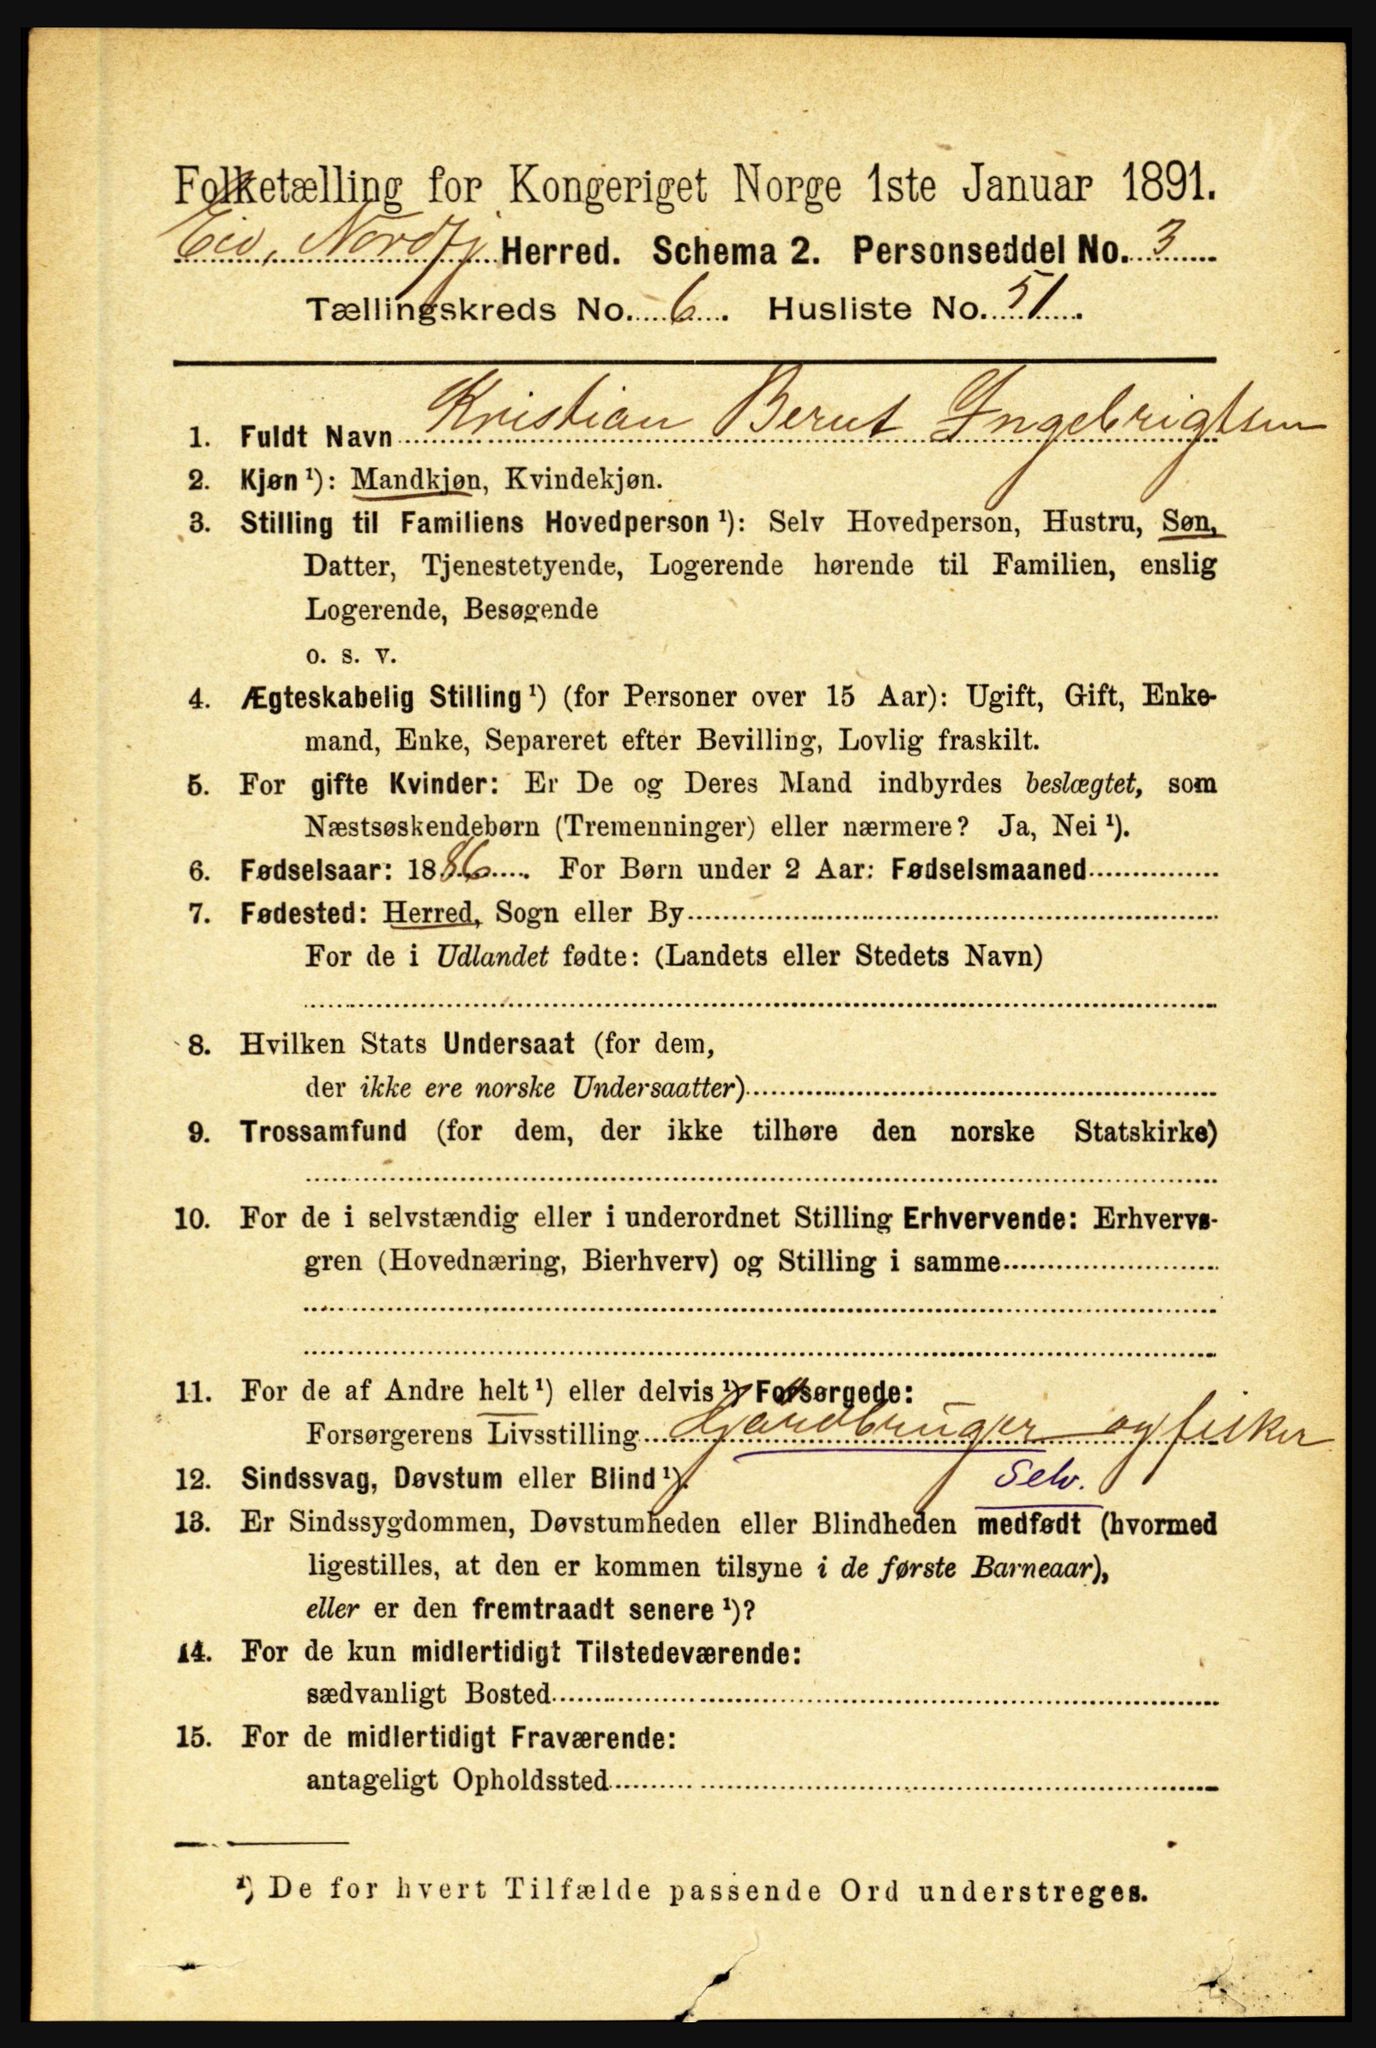 Folketælling for Kongeriget Norge 1ste Januar 1891.
Eid, Nordfj Herred. Schema 2. Personseddel No. 3
Tællingskreds No. 6. Husliste No. 51.
1. Fuldt Navn Kristian Bernt Ingebrigtsen
2. Kjøn ¹): Mandkjøn, Kvindekjøn.
3. Stilling til Familiens Hovedperson ¹): Selv Hovedperson, Hustru, Søn,
Datter, Tjenestetyende, Logerende hørende til Familien, enslig
Logerende, Besøgende
o. s. v.
4. Ægteskabelig Stilling ¹) (for Personer over 15 Aar): Ugift, Gift, Enke-
mand, Enke, Separeret efter Bevilling, Lovlig fraskilt.
5. For gifte Kvinder: Er De og Deres Mand indbyrdes beslægtet, som
Næstsøskendebørn (Tremenninger) eller nærmere? Ja, Nei ¹).
6. Fødselsaar: 1886. For Børn under 2 Aar: Fødselsmaaned
7. Fødested: Herred, Sogn eller By
For de i Udlandet fødte: (Landets eller Stedets Navn)
8. Hvilken Stats Undersaat (for dem,
der ikke ere norske Undersaatter)
9. Trossamfund (for dem, der ikke tilhøre den norske Statskirke)
10. For de i selvstændig eller i underordnet Stilling Erhvervende: Erhvervs-
gren (Hovednæring, Bierhverv) og Stilling i samme
11. For de af Andre helt ¹) eller delvis ¹) Forsørgede:
Forsørgerens Livsstilling Gardbruger og fisker
12. Sindssvag, Døvstum eller Blind ¹). Selv.
13. Er Sindssygdommen, Døvstumheden eller Blindheden medfødt (hvormed
ligestilles, at den er kommen tilsyne i de første Barneaar),
eller er den fremtraadt senere ¹)?
14. For de kun midlertidigt Tilstedeværende:
sædvanligt Bosted
15. For de midlertidigt Fraværende:
antageligt Opholdssted
¹) De for hvert Tilfælde passende Ord understreges.